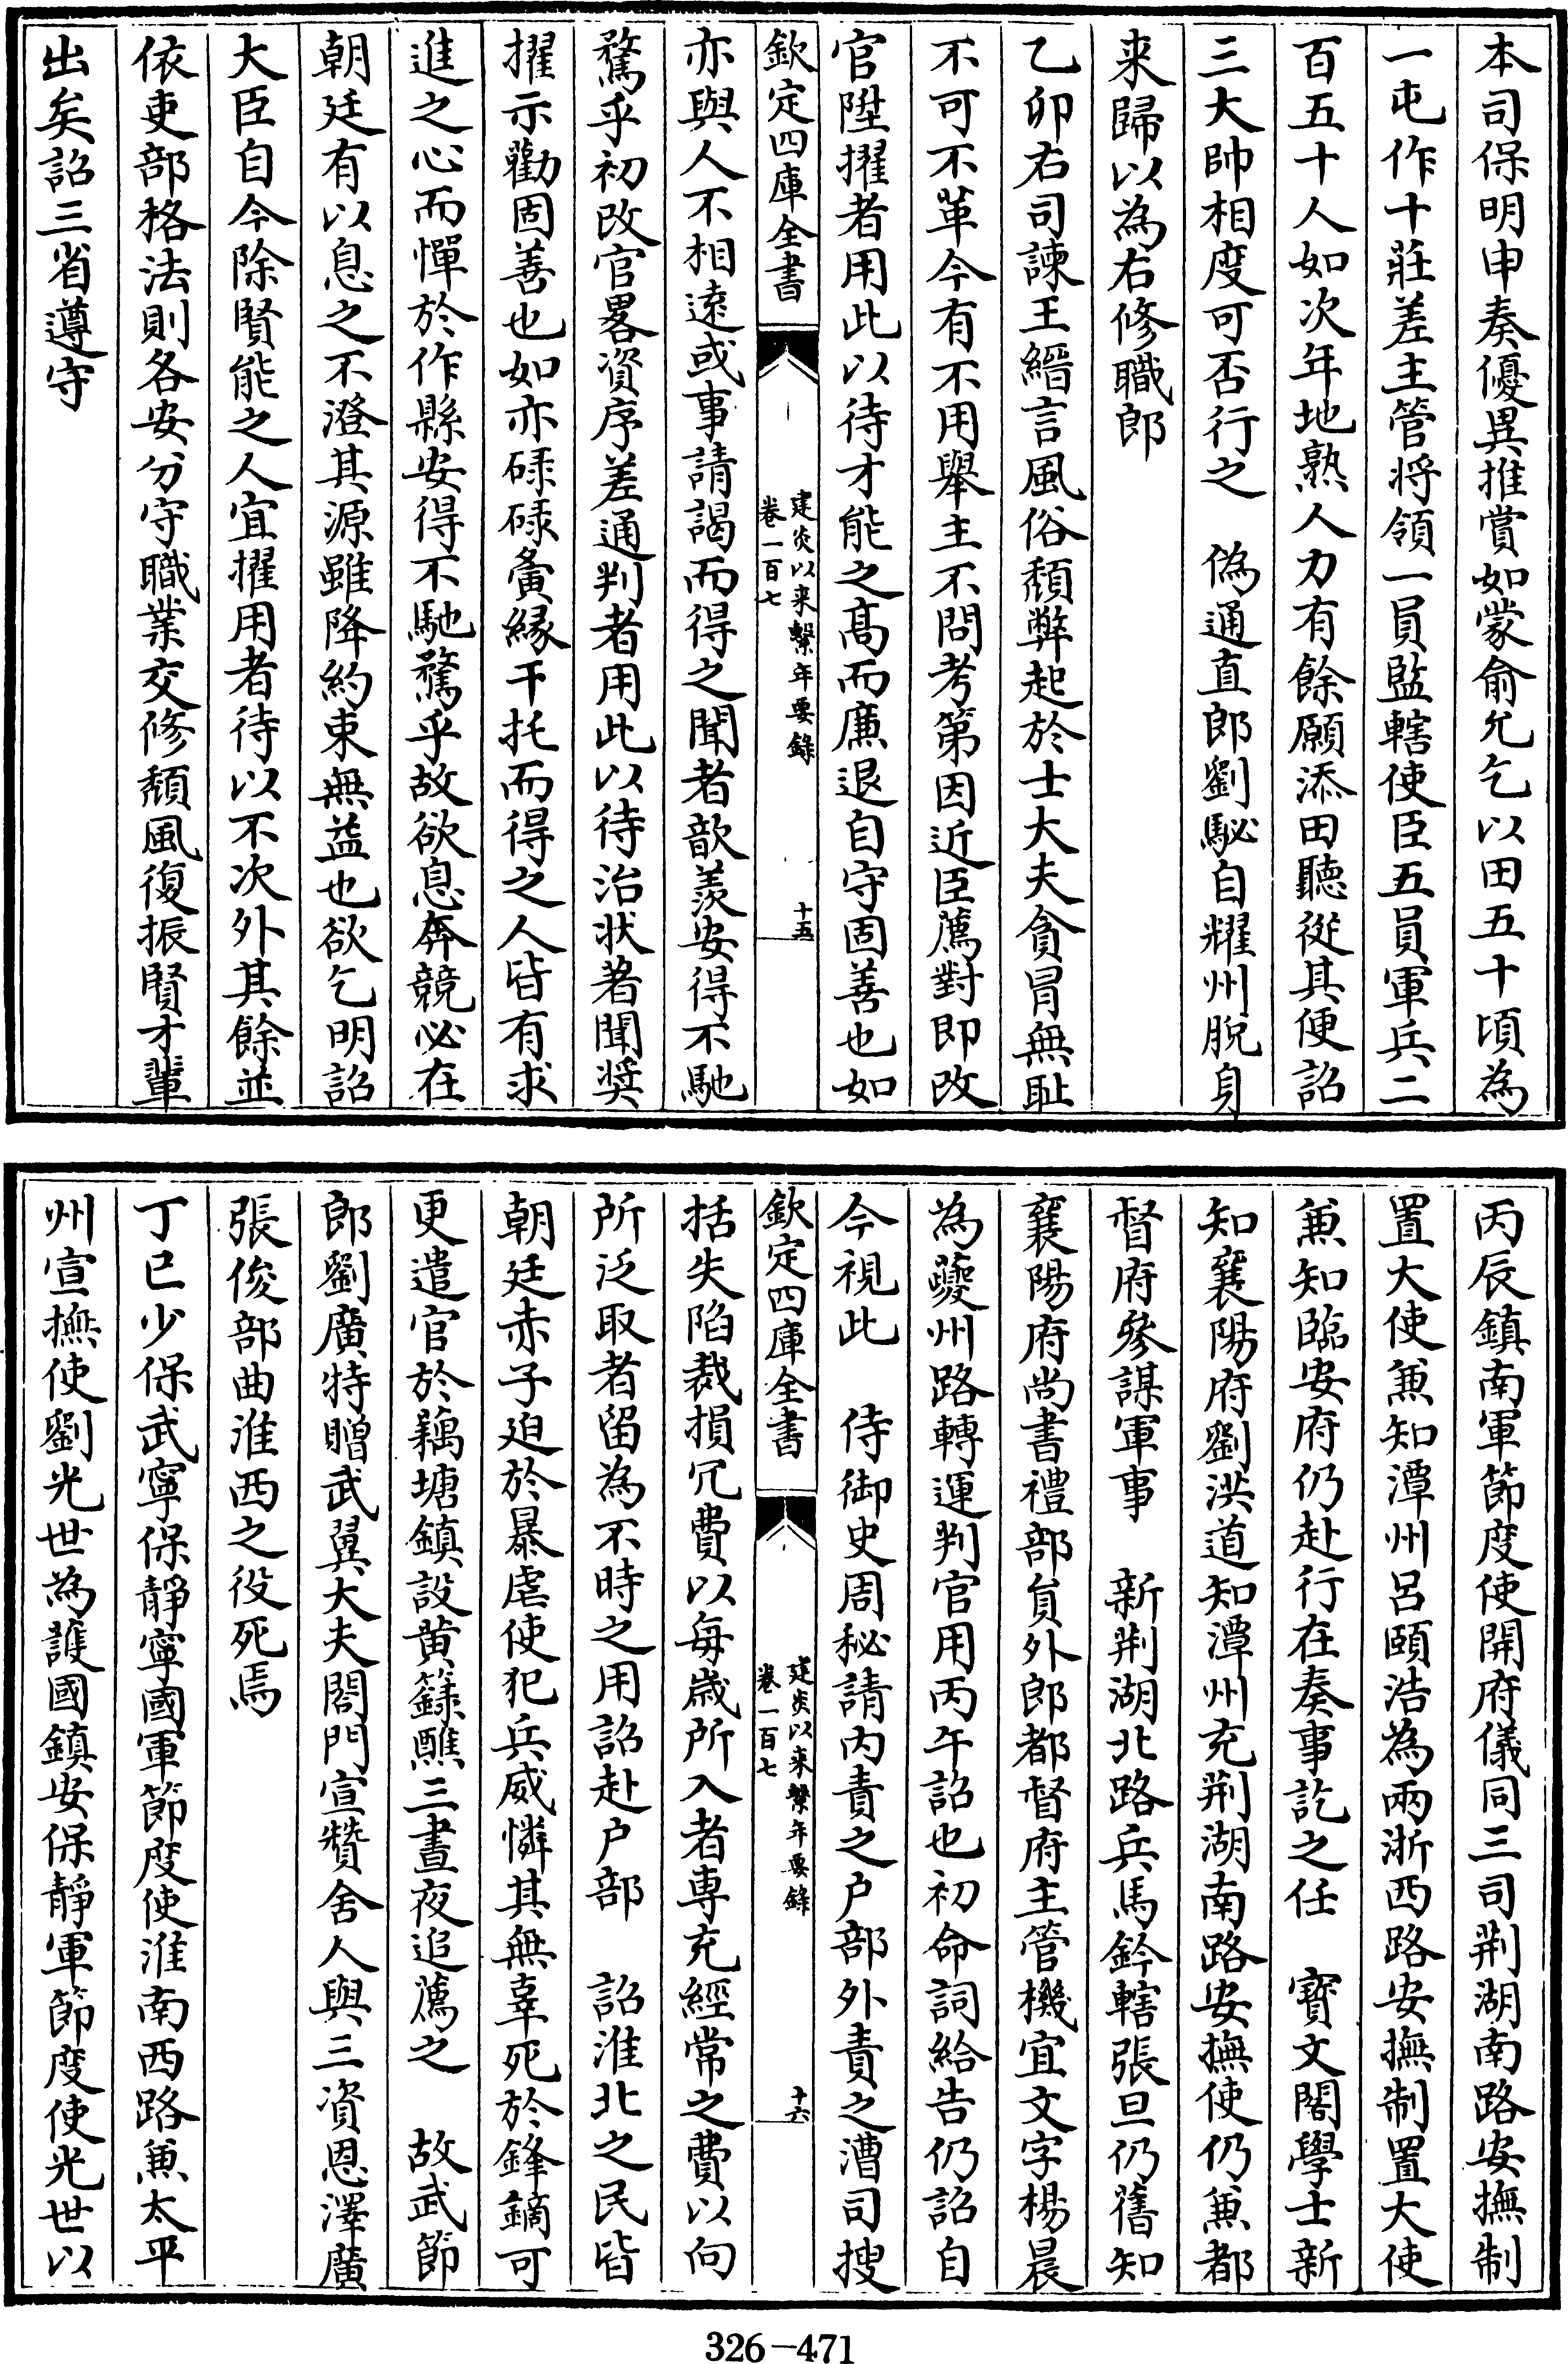 本司保明申奏優異推賞如蒙俞允乞以田五十頃為
一屯作十莊差主管将領一員監轄使臣五員軍兵二
百五十人如次年地熟人力有餘願添田聽從其便詔
三大帥相度可否行之　偽通直郎劉駜自耀州脫身
来歸以為右修職郎
乙卯右司諫王縉言風俗頹弊起於士大夫貪冒無耻
不可不革今有不用舉主不問考第因近臣薦對即改
官陞擢者用此以待才能之髙而廉退自守固善也如
欽定四庫全書
建炎以来繫年要錄
卷一百七
十五
亦與人不相遠或事請謁而得之聞者歆羡安得不馳
騖乎初改官畧資序差通判者用此以待治状著聞奬
擢示勸固善也如亦碌碌夤緣干托而得之人皆有求
進之心而憚於作縣安得不馳騖乎故欲息奔競必在
朝廷有以息之不澄其源雖降約束無益也欲乞明詔
大臣自今除賢能之人宜擢用者待以不次外其餘並
依吏部格法則各安分守職業交修頹風復振賢才輩
出矣詔三省遵守
丙辰鎮南軍節度使開府儀同三司荆湖南路安撫制
置大使兼知潭州呂頤浩為兩浙西路安撫制置大使
兼知臨安府仍赴行在奏事訖之任　寶文閣學士新
知襄陽府劉洪道知潭州充荆湖南路安撫使仍兼都
督府參謀軍事　新荆湖北路兵馬鈐轄張旦仍舊知
襄陽府尚書禮部員外郎都督府主管機宜文字楊晨
為夔州路轉運判官用丙午詔也初命詞給告仍詔自
今視此　侍御史周秘請内責之户部外責之漕司搜
欽定四庫全書
建炎以来繫年要錄
卷一百七
十六
括失陷裁損冗費以每歲所入者專充經常之費以向
所泛取者留為不時之用詔赴户部　詔淮北之民皆
朝廷赤子迫於暴虐使犯兵威憐其無辜死於鋒鏑可
更遣官於藕塘鎮設黄籙醮三晝夜追薦之　故武節
郎劉廣特贈武翼大夫閤門宣贊舍人與三資恩澤廣
張俊部曲淮西之役死焉
丁巳少保武寧保靜寧國軍節度使淮南西路兼太平
州宣撫使劉光世為護國鎮安保靜軍節度使光世以
326-471